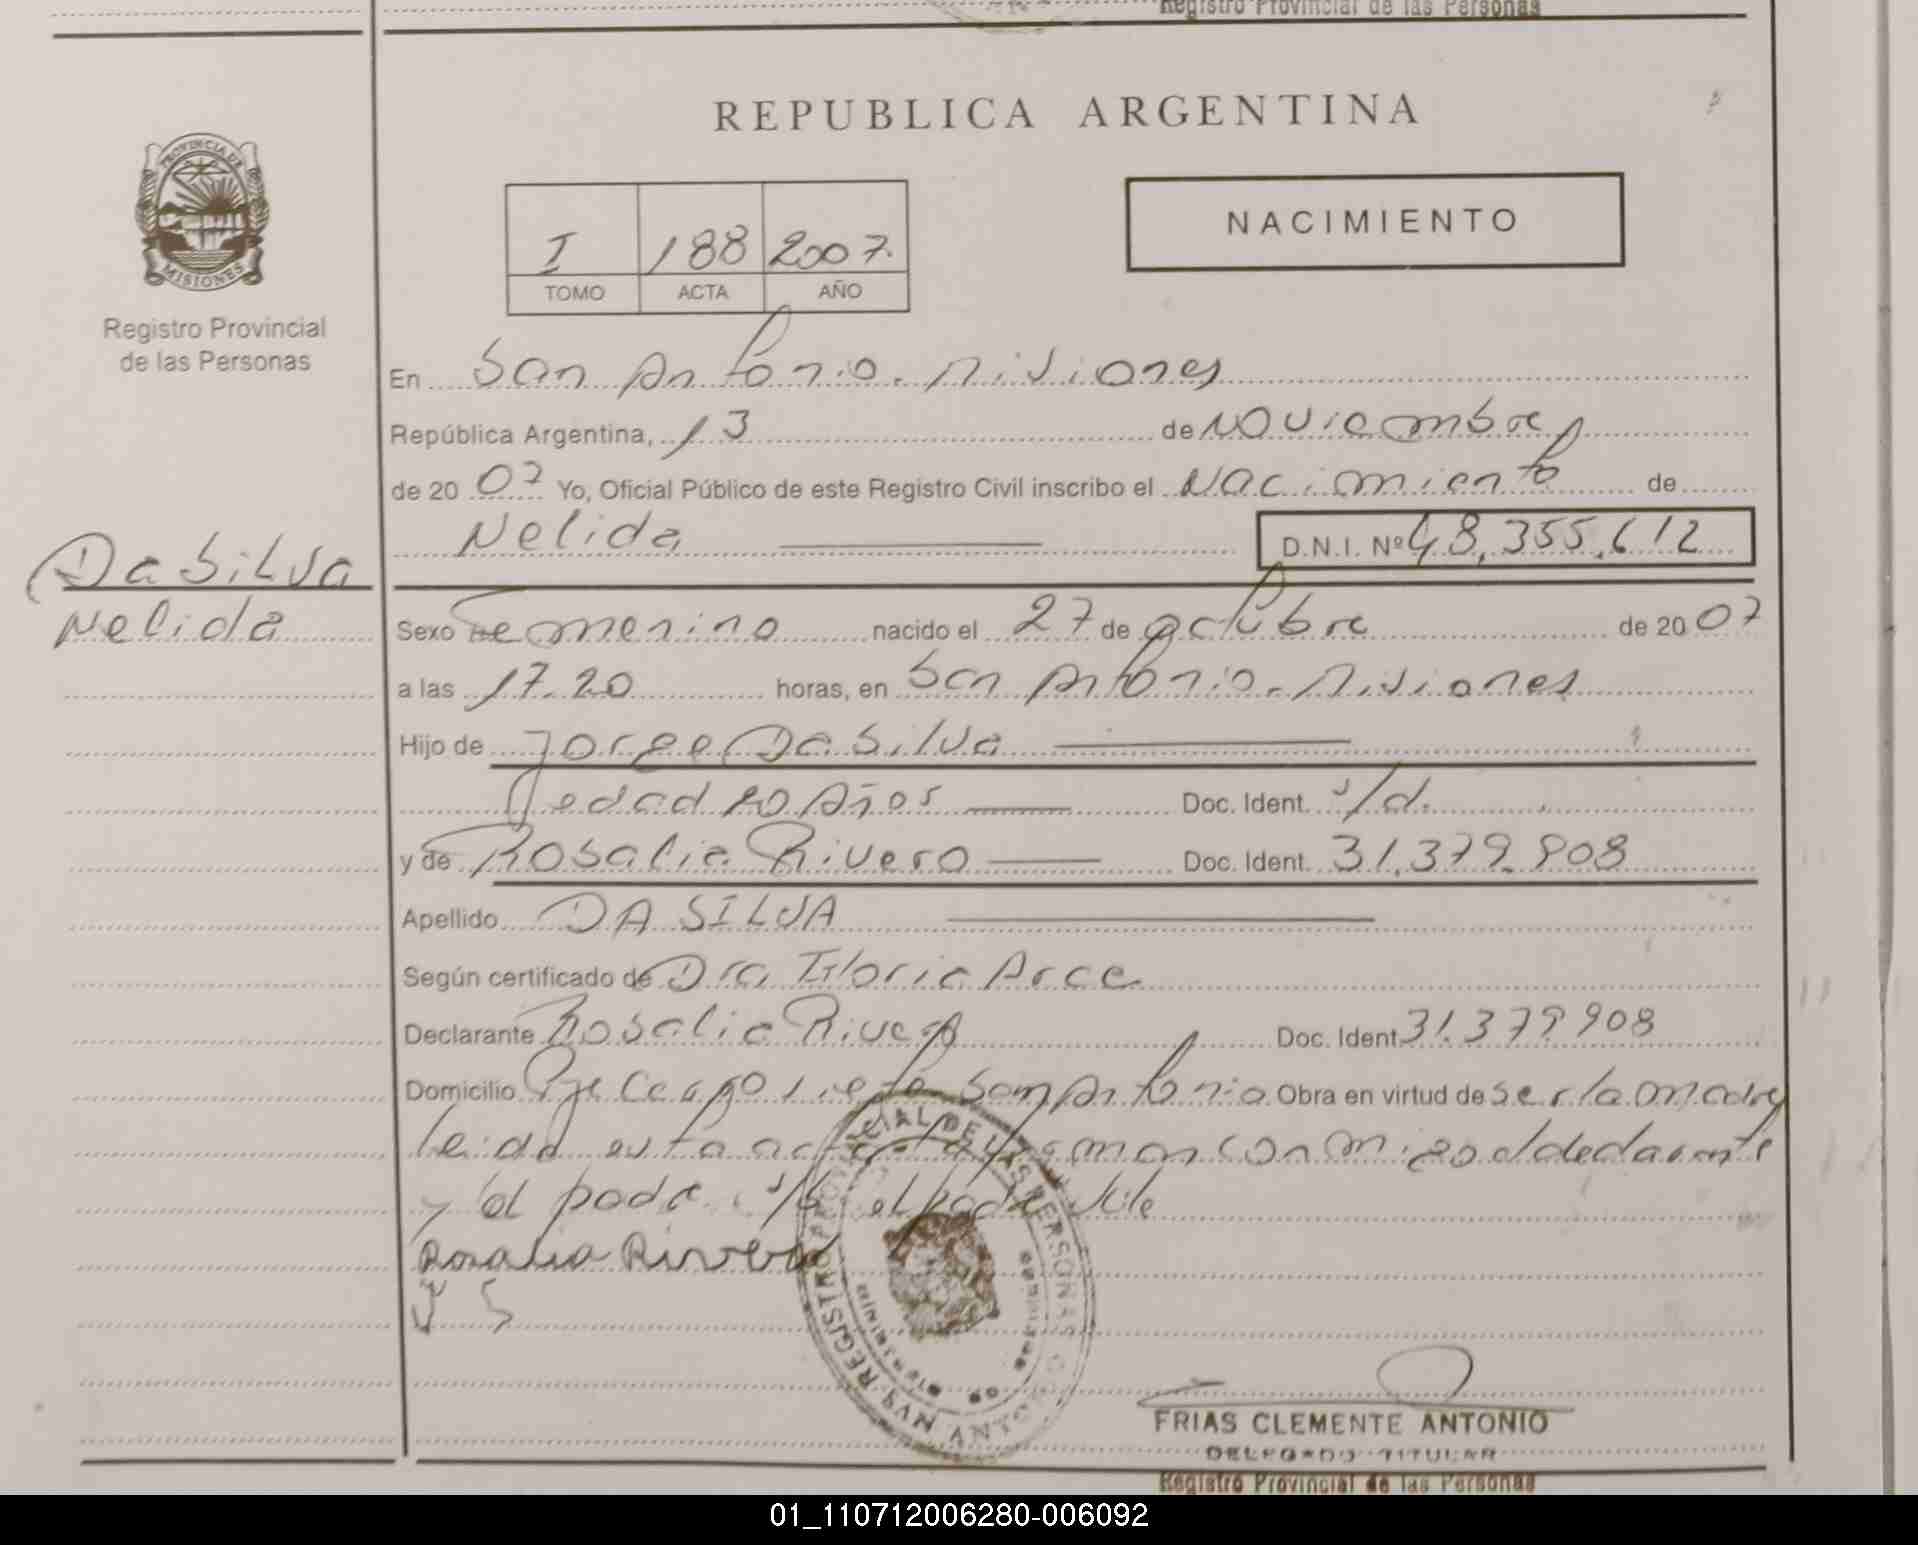 Registro Provincial de las Personas
REPUBLICA ARGENTINA
PROVINCIA DE
MISIONES
Registro Provincial
de las Personas
NACIMIENTO
I 188 2007.
TOMO ACTA AÑO
En San Antonio. Misiones
República Argentina, 13 de Noviembre
de 20 07 Yo, Oficial Público de este Registro Civil inscribo el Nacimiento de
Nelida D.N.I. Nº 48.355.612
Da Silva
Nelida
Sexo Femenino nacido el 27 de octubre de 20 07
a las 17.20 horas, en San Antonio. Misiones
Hijo de Jorge Da Silva
edad 20 Años Doc. Ident. s/d.
y de Rosalia Rivero Doc. Ident. 31.379.908
Apellido DA SILVA
Según certificado de Dra Gloria Arce
Declarante Rosalia Rivero Doc. Ident. 31.379.908
Domicilio San Antonio Obra en virtud de ser la madre
leida esta acta la firman conmigo el declarante
y el padre el padre vale
Rosalia Rivero
J S
REGISTRO PROVINCIAL DE LAS PERSONAS
FRIAS CLEMENTE ANTONIO
DELEGADO TITULAR
Registro Provincial de las Personas
01_110712006280-006092